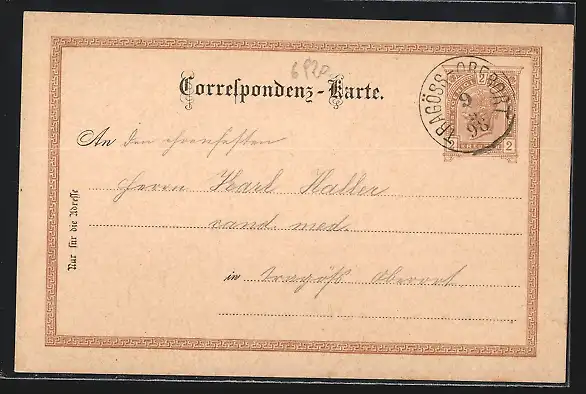 692P
Correspondenz-Karte.
TRAGÖSS-OBERORT
9
96
2
2
An den ehrenfesten
Herrn Karl Haller
cand. med.
in Tragöß Oberort
Nur für die Adresse